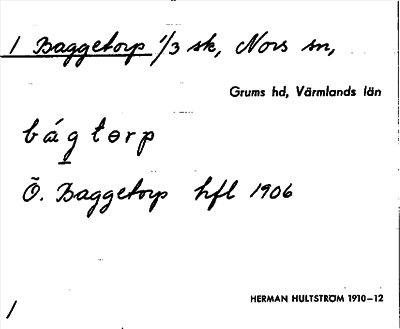 1 Baggetorp 1/3 sk, Nors sn,
Grums hd, Värmlands län
bágtɵrp
Ö. Baggetorp hfl 1906
HERMAN HULTSTRÖM 1910–12
1